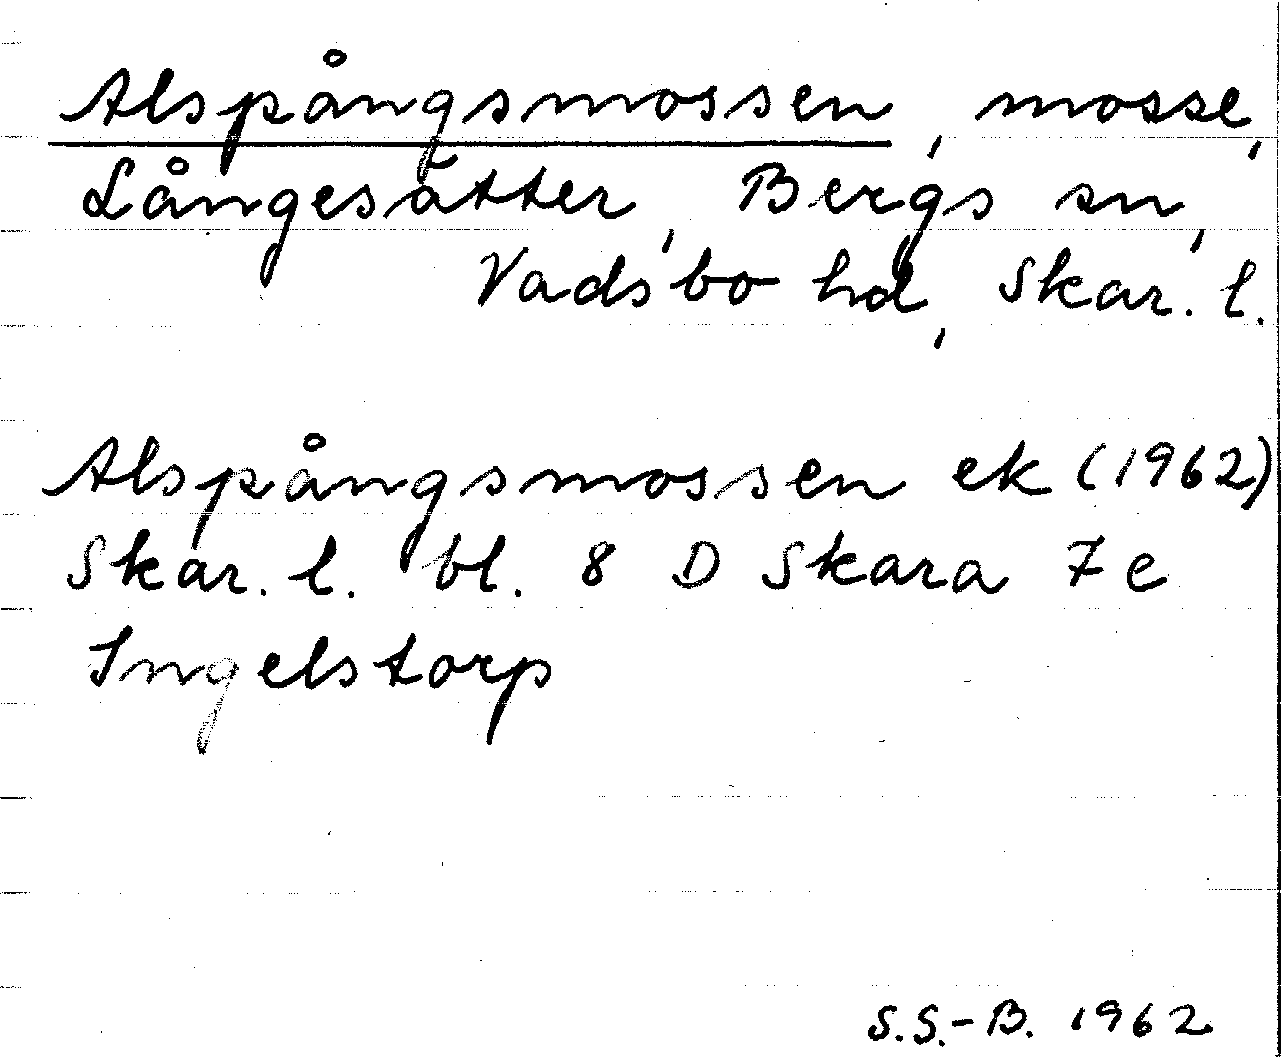 Alspångsmossen, mosse,
Långesätter, Bergs sn,
Vadsbo hd, Skar. l.
Alspångsmossen ek (1962)
Skar. l. bl. 8 D Skara 7 e
Ingelstorp
S.S.-B. 1962